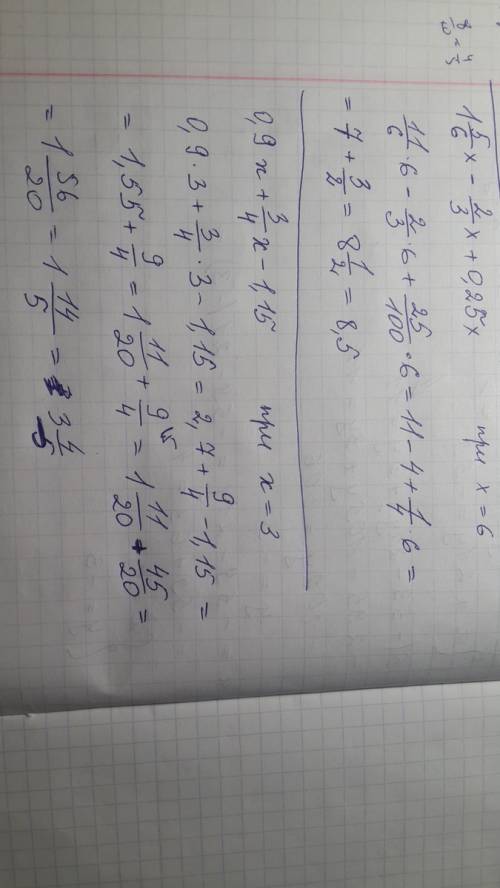 8/10 = 4/5
1 5/6 x - 2/3 x + 0,25x при x = 6
11/6 · 6 - 2/3 · 6 + 25/100 · 6 = 11 - 4 + 1/4 · 6 =
= 7 + 3/2 = 8 1/2 = 8,5
0,9x + 3/4 x - 1,15 при x = 3
0,9 · 3 + 3/4 · 3 - 1,15 = 2,7 + 9/4 - 1,15 =
= 1,55 + 9/4 = 1 11/20 + 9/4 \5 = 1 11/20 + 45/20 =
= 1 56/20 = 1 14/5 = 3 4/5